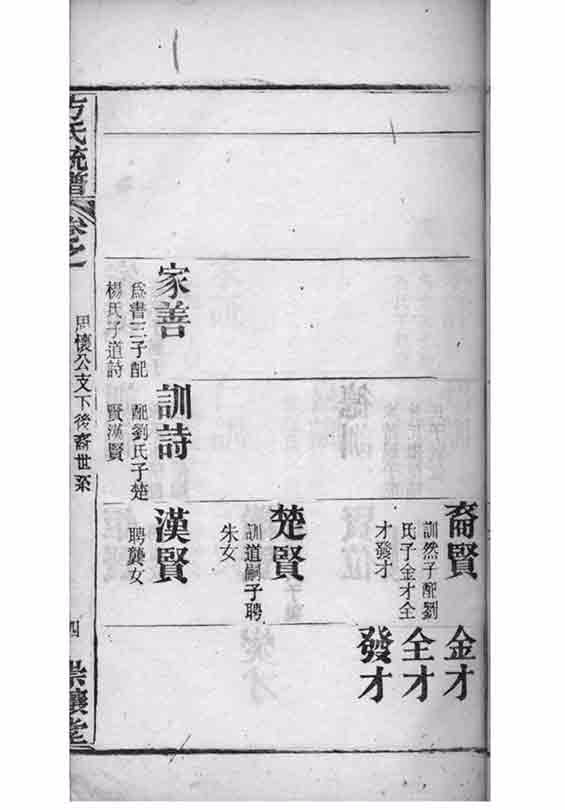 裔賢
訓然子配劉
氏子金才全
才發才
金才
全才
發才
楚賢
訓道嗣子聘
朱女
家善
爲書三子配
楊氏子道詩
訓詩
配劉氏子楚
賢漢賢
漢賢
聘龔女
方氏統譜
卷之一
思懷公支下後裔世系
四
崇讓堂